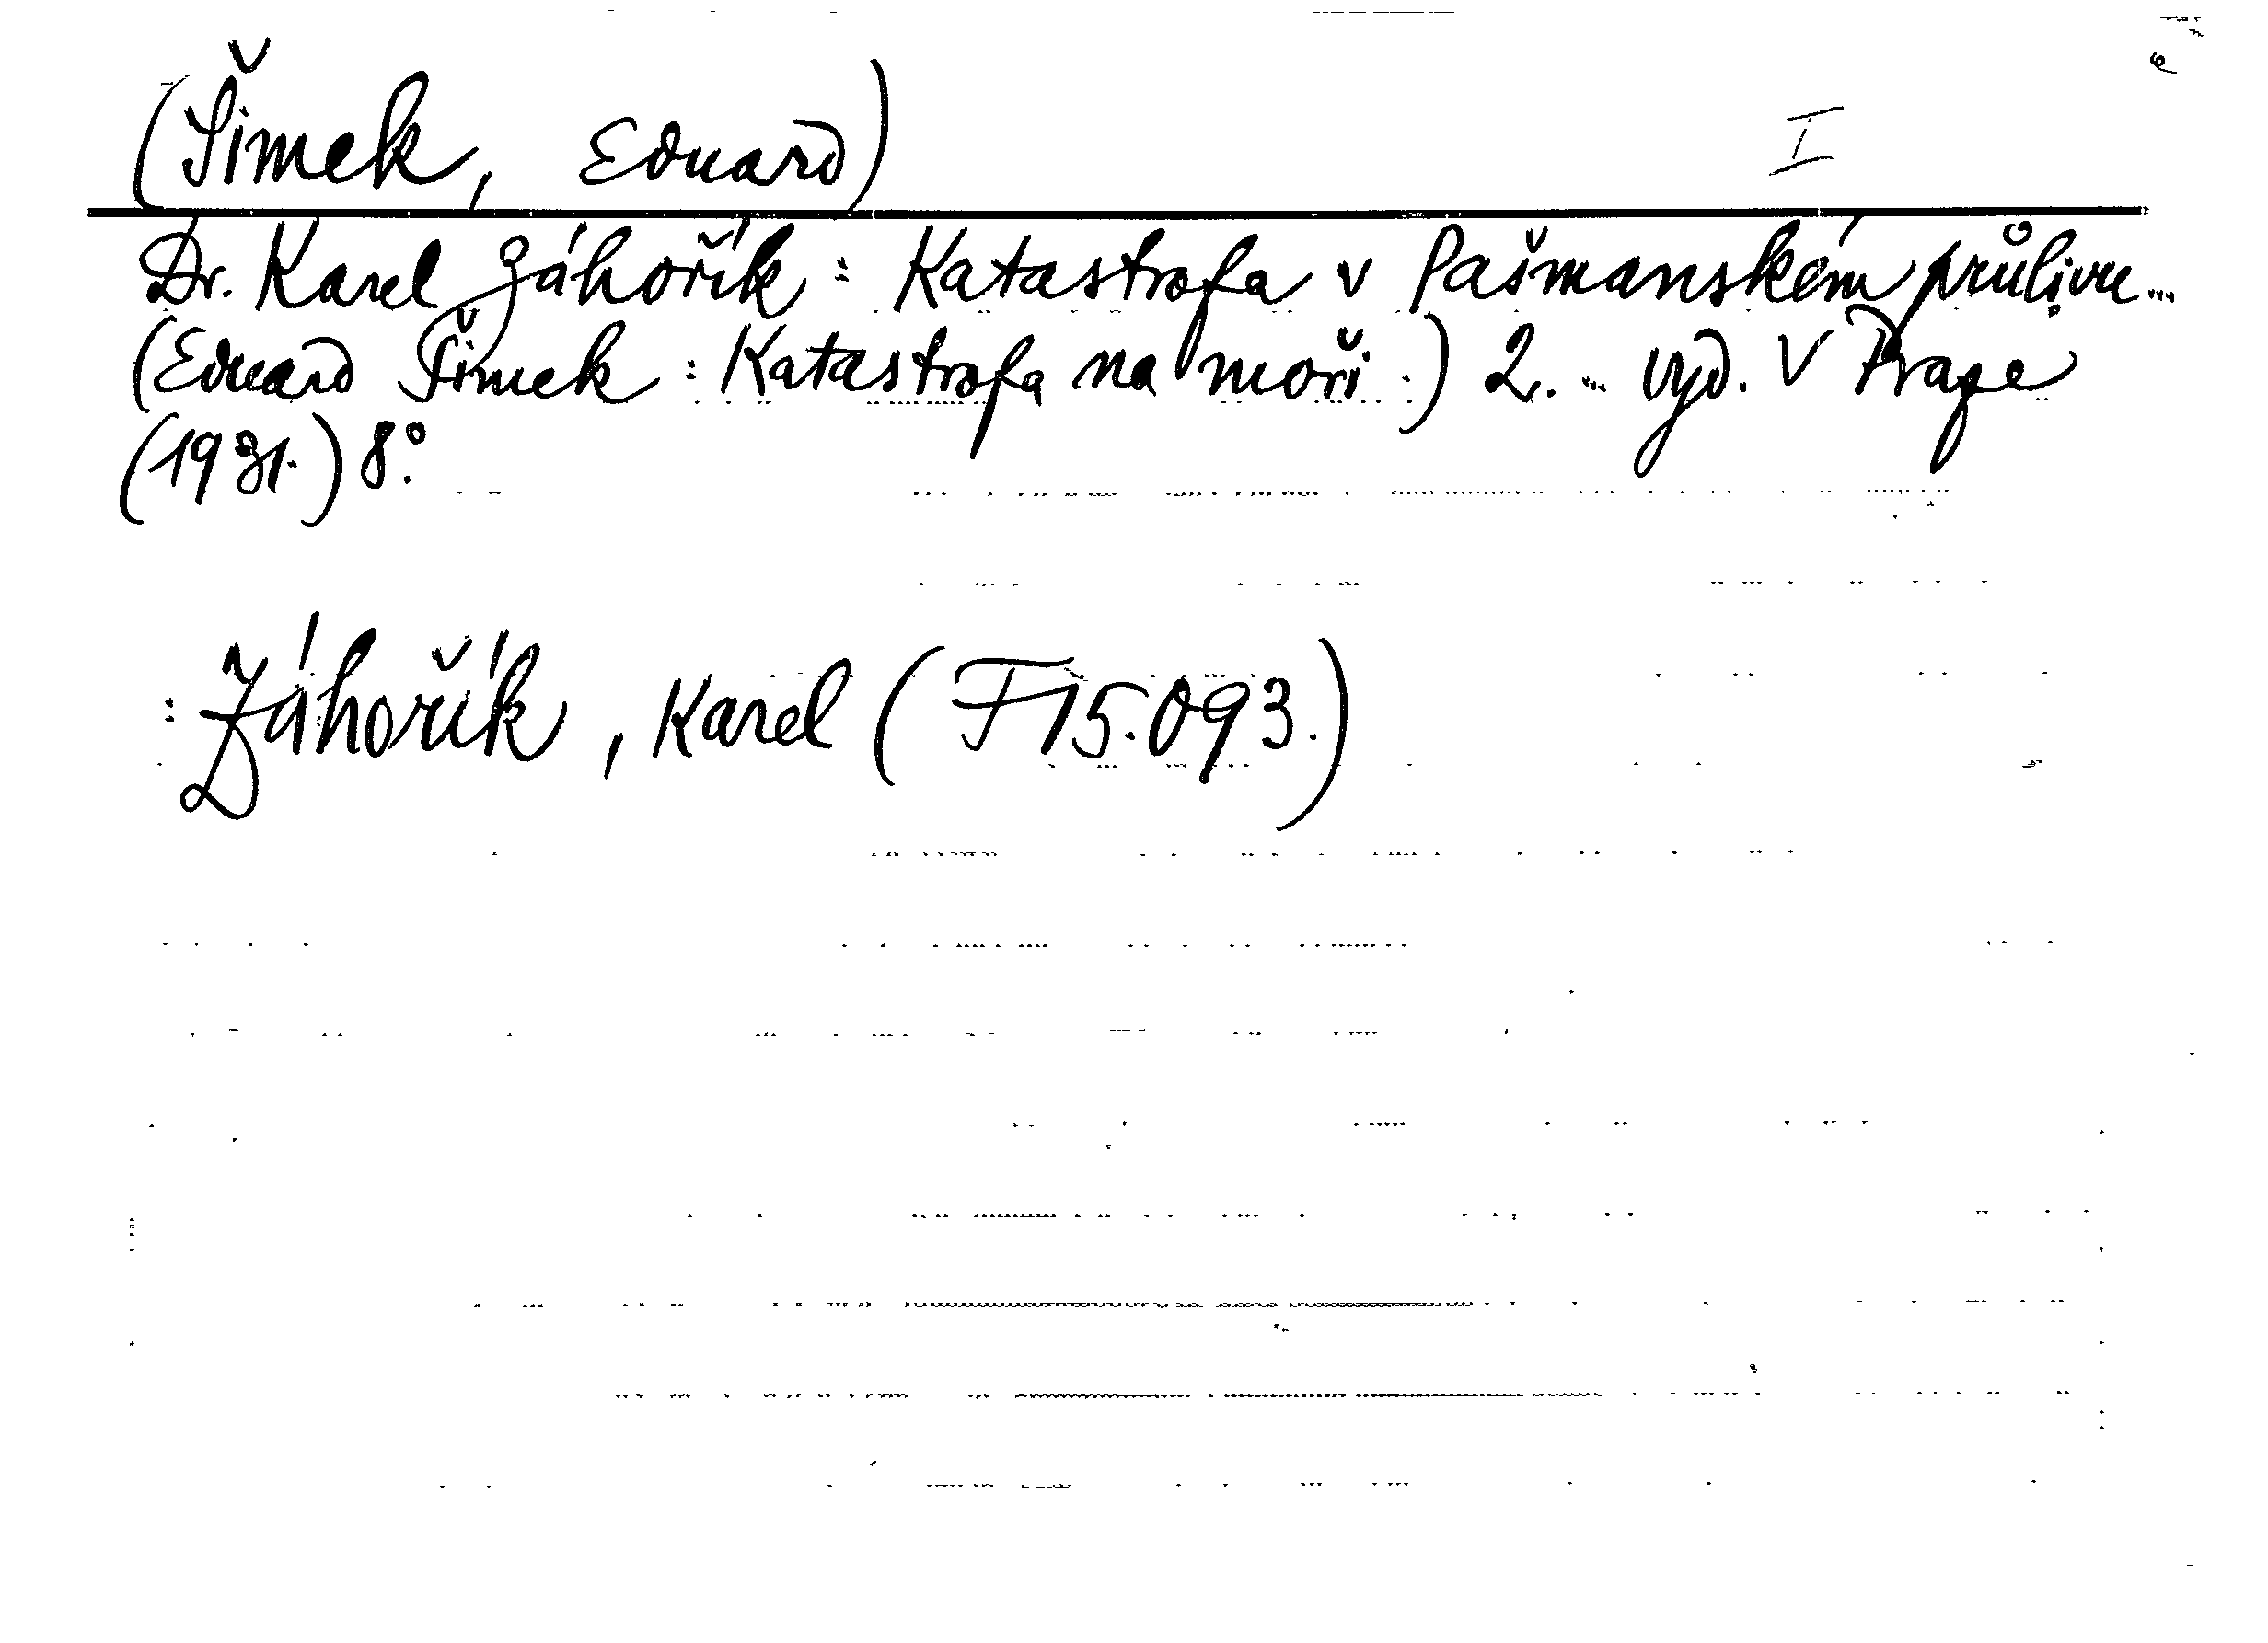 (Šimek, Eduard) I
Dr. Karel Záhořík: Katastrofa v Pašmanském průlivu...
(Eduard Šimek: Katastrofa na moři.) 2. ... vyd. V Praze
(1931.) 8°.
: Záhořík, Karel (F 15.093.)